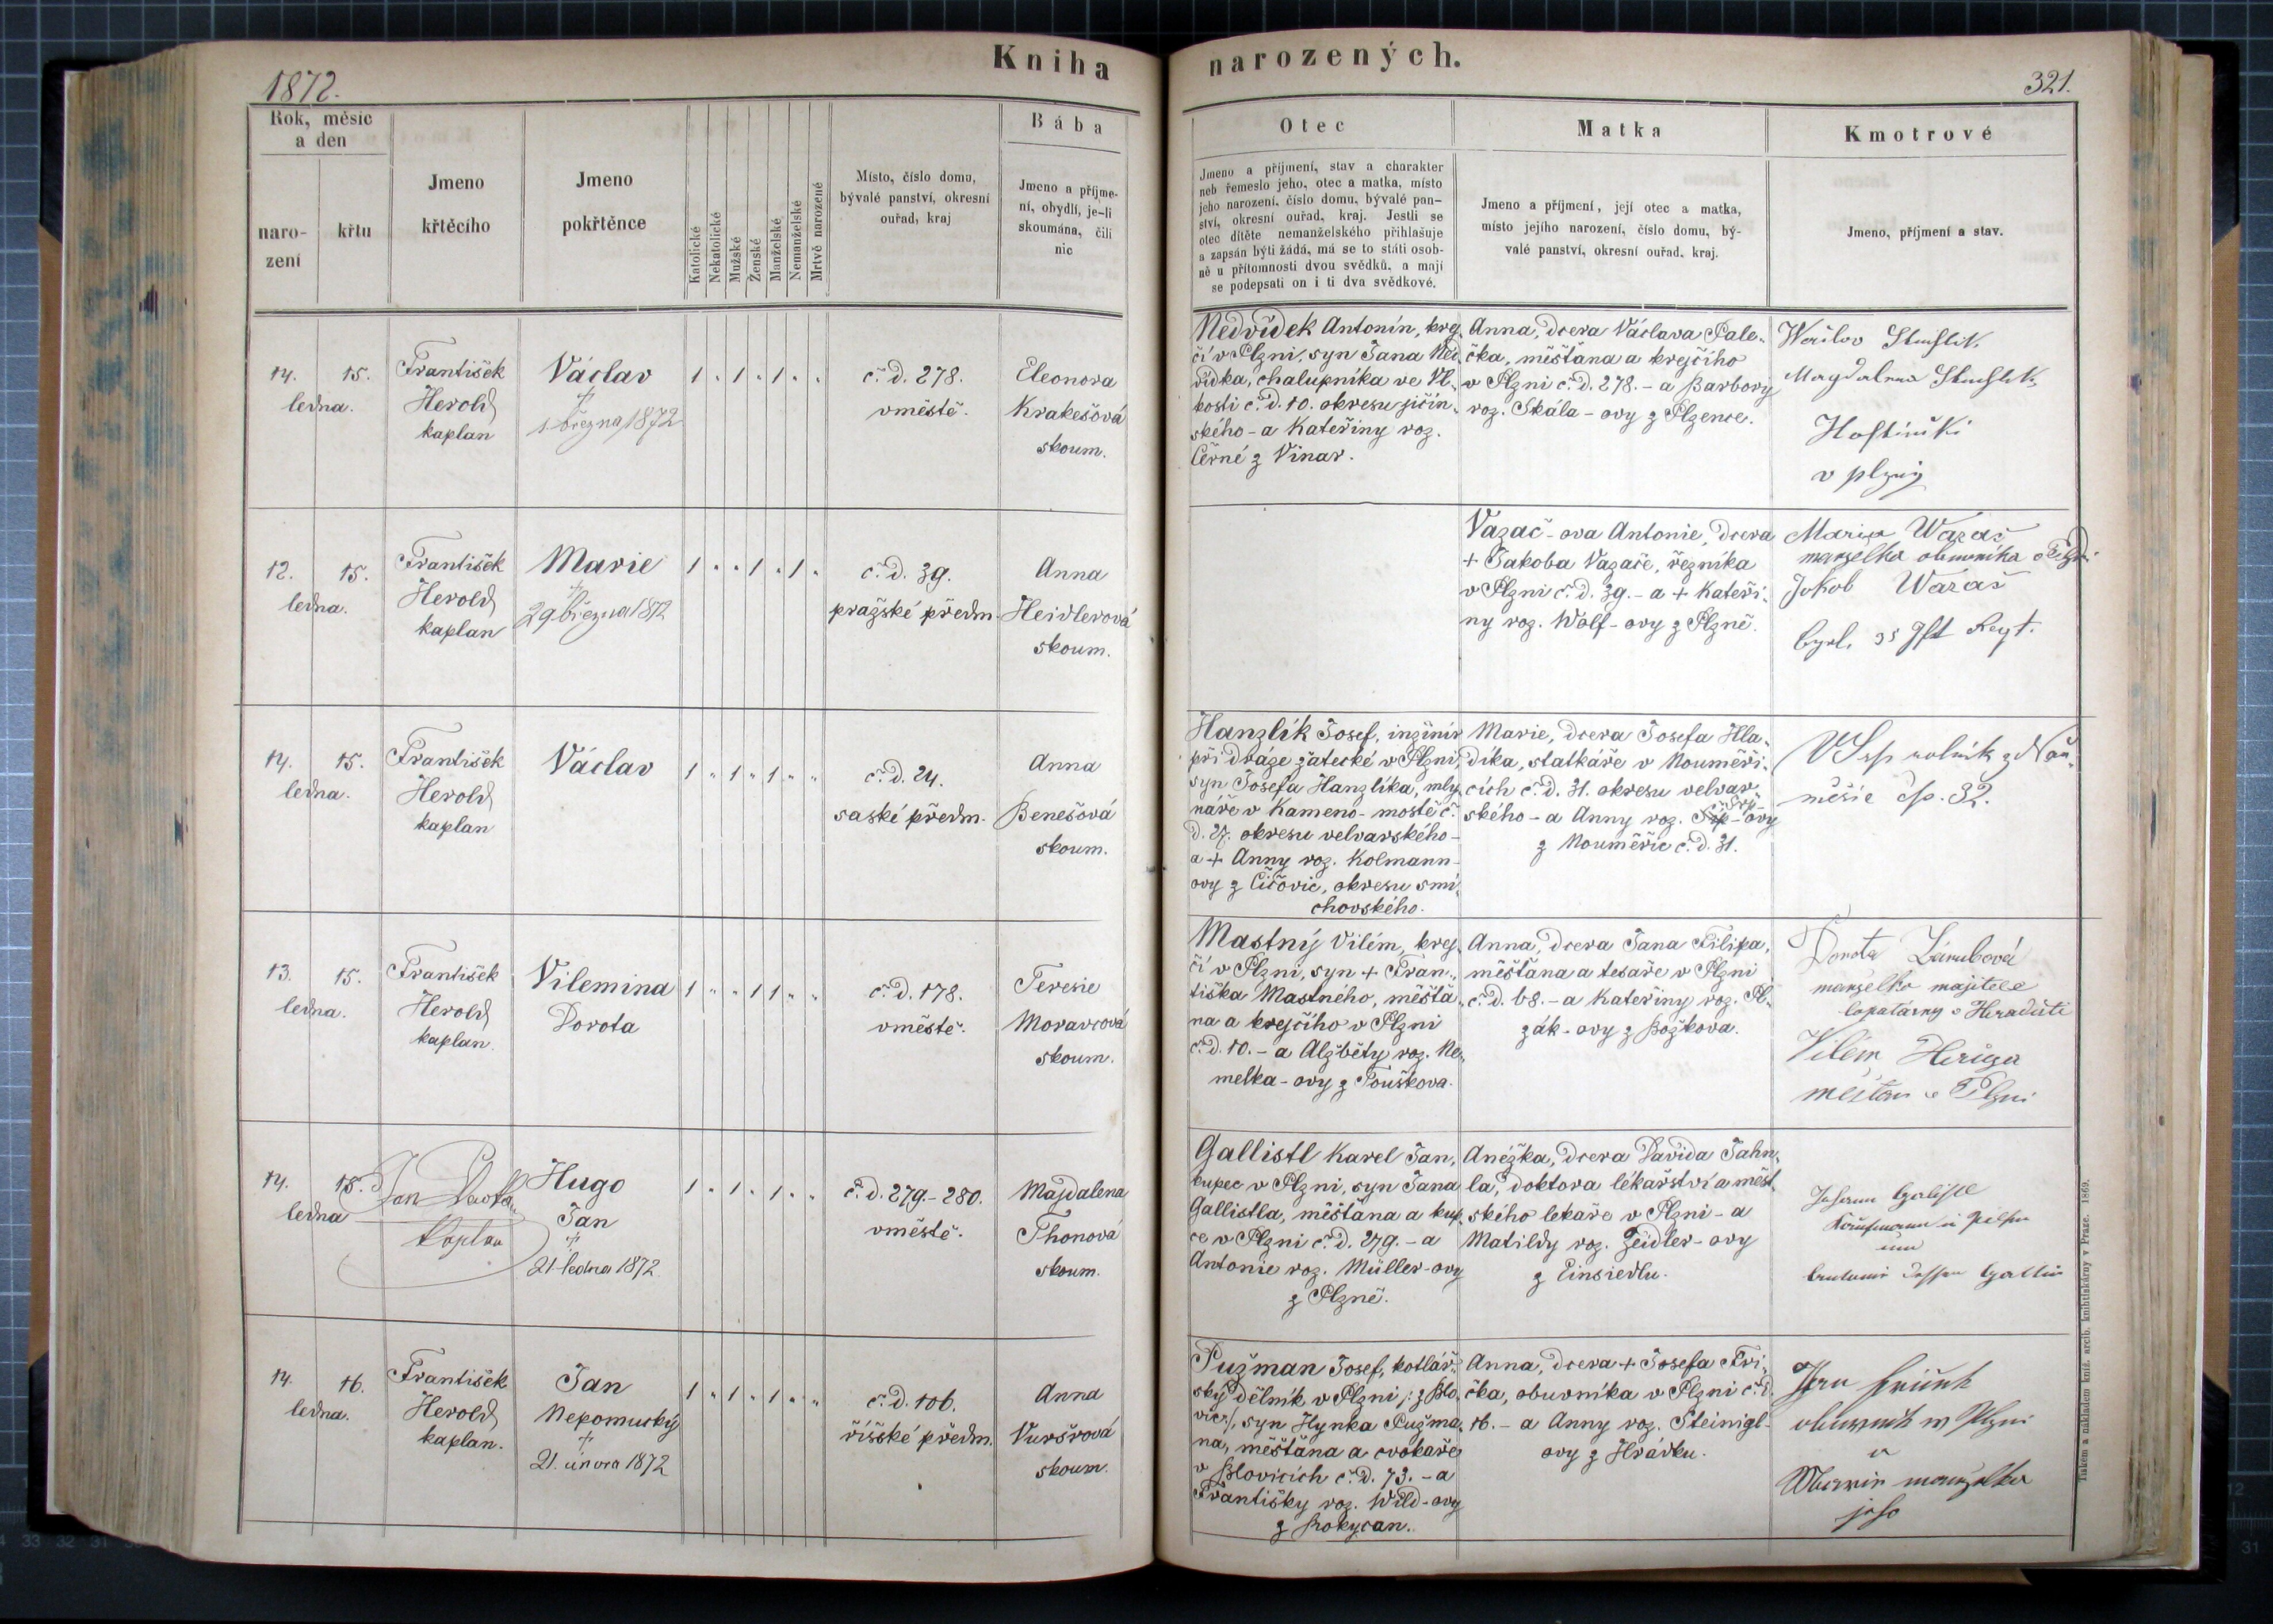 Kniha narozených.
1872.
321.
Rok, měsíc
a den
naro-
zení
křtu
Jmeno
křtěcího
Jmeno
pokřtěnce
Katolické
Nekatolické
Mužské
Ženské
Manželské
Nemanželské
Mrtvě narozené
Místo, číslo domu,
bývalé panství, okresní
ouřad, kraj
Bába
Jmeno a příjme-
ní, obydlí, je-li
skoumána, čili
nic
Otec
Jmeno a příjmení, stav a charakter
neb řemeslo jeho, otec a matka, místo
jeho narození, číslo domu, bývalé pan-
ství, okresní ouřad, kraj. Jestli se
otec dítěte nemanželského přihlašuje
a zapsán býti žádá, má se to státi osob-
ně u přítomnosti dvou svědků, a mají
se podepsati on i ti dva svědkové.
Matka
Jmeno a příjmení, její otec a matka,
místo jejího narození, číslo domu, bý-
valé panství, okresní ouřad, kraj.
Kmotrové
Jmeno, příjmení a stav.
14. 15.
ledna.
František
Herold
kaplan
Václav
+
1. března 1872
1 " 1 " 1 " "
č. d. 278.
v městě.
Eleonora
Krakešová
skoum.
Nedvídek Antonín, krej-
čí v Plzni, syn Jana Ned-
vídka, chalupníka ve Vl-
kosti č. d. 10. okresu jičín-
ského - a Kateřiny roz.
Černé z Vinar.
Anna, dcera Václava Pale-
čka, měšťana a krejčího
v Plzni č. d. 278. - a Barbory
roz. Skála-ovy z Plzence.
Magdalena
v
12. 15.
ledna.
František
Herold
kaplan
Marie
+
29 března 1872
1 " " 1 " 1 "
č. d. 39.
pražské předm.
Anna
Heidlerová
skoum.
Vazač-ova Antonie, dcera
+ Jakoba Vazače, řezníka
v Plzni č. d. 39. - a + Kateři-
ny roz. Wolf-ovy z Plzně.
Maria Wazač
manželka obuvníka v Plzni
Jakob Wazač
14. 15.
ledna.
František
Herold
kaplan
Václav
1 " 1 " 1 " "
č. d. 24.
saské předm.
Anna
Benešová
skoum.
Hanzlík Josef, inženír
při dráze žatecké v Plzni,
syn Josefa Hanzlíka, mly-
náře v Kameno-mostě č.
d. 27. okresu velvarského -
a + Anny roz. Kolmann-
ovy z Čičovic, okresu smí-
chovského.
Marie, dcera Josefa Hla-
díka, statkáře v Nouměři-
cích č. d. 31. okresu velvar-
ského - a Anny roz. Srp-ovy
z Nouměřic č. d. 31.
V Srp rolník z Nou-
měřic čp. 32.
13. 15.
ledna.
František
Herold
kaplan.
Vilemina
Dorota
1 " " 1 1 " "
č. d. 178.
v městě.
Teresie
Moravcová
skoum.
Mastný Vilém, krej-
čí v Plzni, syn + Fran-
tiška Mastného, měšťa-
na a krejčího v Plzni
č. d. 10. - a Alžběty roz. Ne-
melka-ovy z Touškova.
Anna, dcera Jana Filipa,
měšťana a tesaře v Plzni
č. d. 68. - a Kateřiny roz. Pl-
zák-ovy z Božkova.
Dorota
manželka majitele
Vilém
měšťan v Plzni
14. 18.
ledna
Jan
kaplan
Hugo
Jan
+
21 ledna 1872
1 " 1 " 1 " "
č. d. 279.-280.
v městě.
Majdalena
Thonová
skoum.
Gallistl Karel Jan,
kupec v Plzni, syn Jana
Gallistla, měšťana a kup-
ce v Plzni č. d. 279. - a
Antonie roz. Müller-ovy
z Plzně.
Anežka, dcera Davida Jahn-
la, doktora lékařství a měst-
ského lékaře v Plzni - a
Matildy roz. Zeidler-ovy
z Einsiedlu.
Johann Galistl
Kaufmann in Pilsen
14. 16.
ledna.
František
Herold
kaplan.
Jan
Nepomucký
+
21. února 1872
1 " 1 " 1 " "
č. d. 106.
říšské předm.
Anna
Vuršrová
skoum.
Pužman Josef, kotlář-
ský dělník v Plzni /: z Blo-
vic :/, syn Hynka Pužma-
na, měšťana a cvokaře
v Blovicích č. d. 73. - a
Františky roz. Wild-ovy
z Rokycan.
Anna, dcera + Josefa Fri-
čka, obuvníka v Plzni č. d.
16. - a Anny roz. Steinigl-
ovy z Hrádku.
Jan
obuvník w Plzni
a
manželka
jeho
Tiskem a nákladem kníž. arcib. knihtiskárny v Praze. 1869.